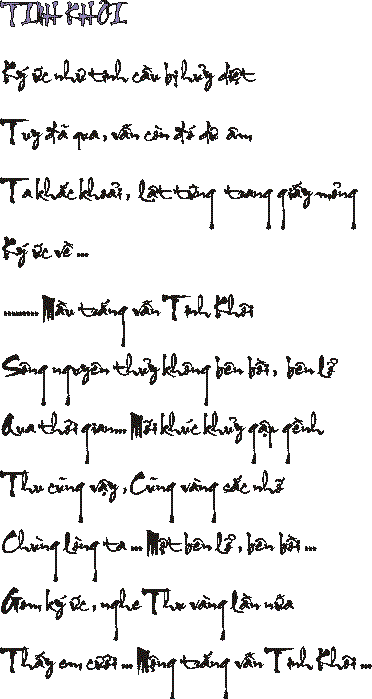 TINH KHÔI
Ký ức như tinh cầu bị hủy diệt
Tuy đã qua, vẫn còn đó dư âm
Ta khắc khoải, lật từng trang giấy mỏng
Ký ức về ...
......... Mầu trắng vẫn Tinh Khôi
Sông nguyên thủy không bên bồi, bên lở
Qua thời gian... Mới khúc khuỷu gập gềnh
Thu cũng vậy, Cũng vàng sắc nhớ
Chùng lòng ta ... Một bên lở, bên bồi ...
Gom ký ức, nghe Thu vàng lần nữa
Thấy em cười ... Nắng trắng vẫn Tinh Khôi ...